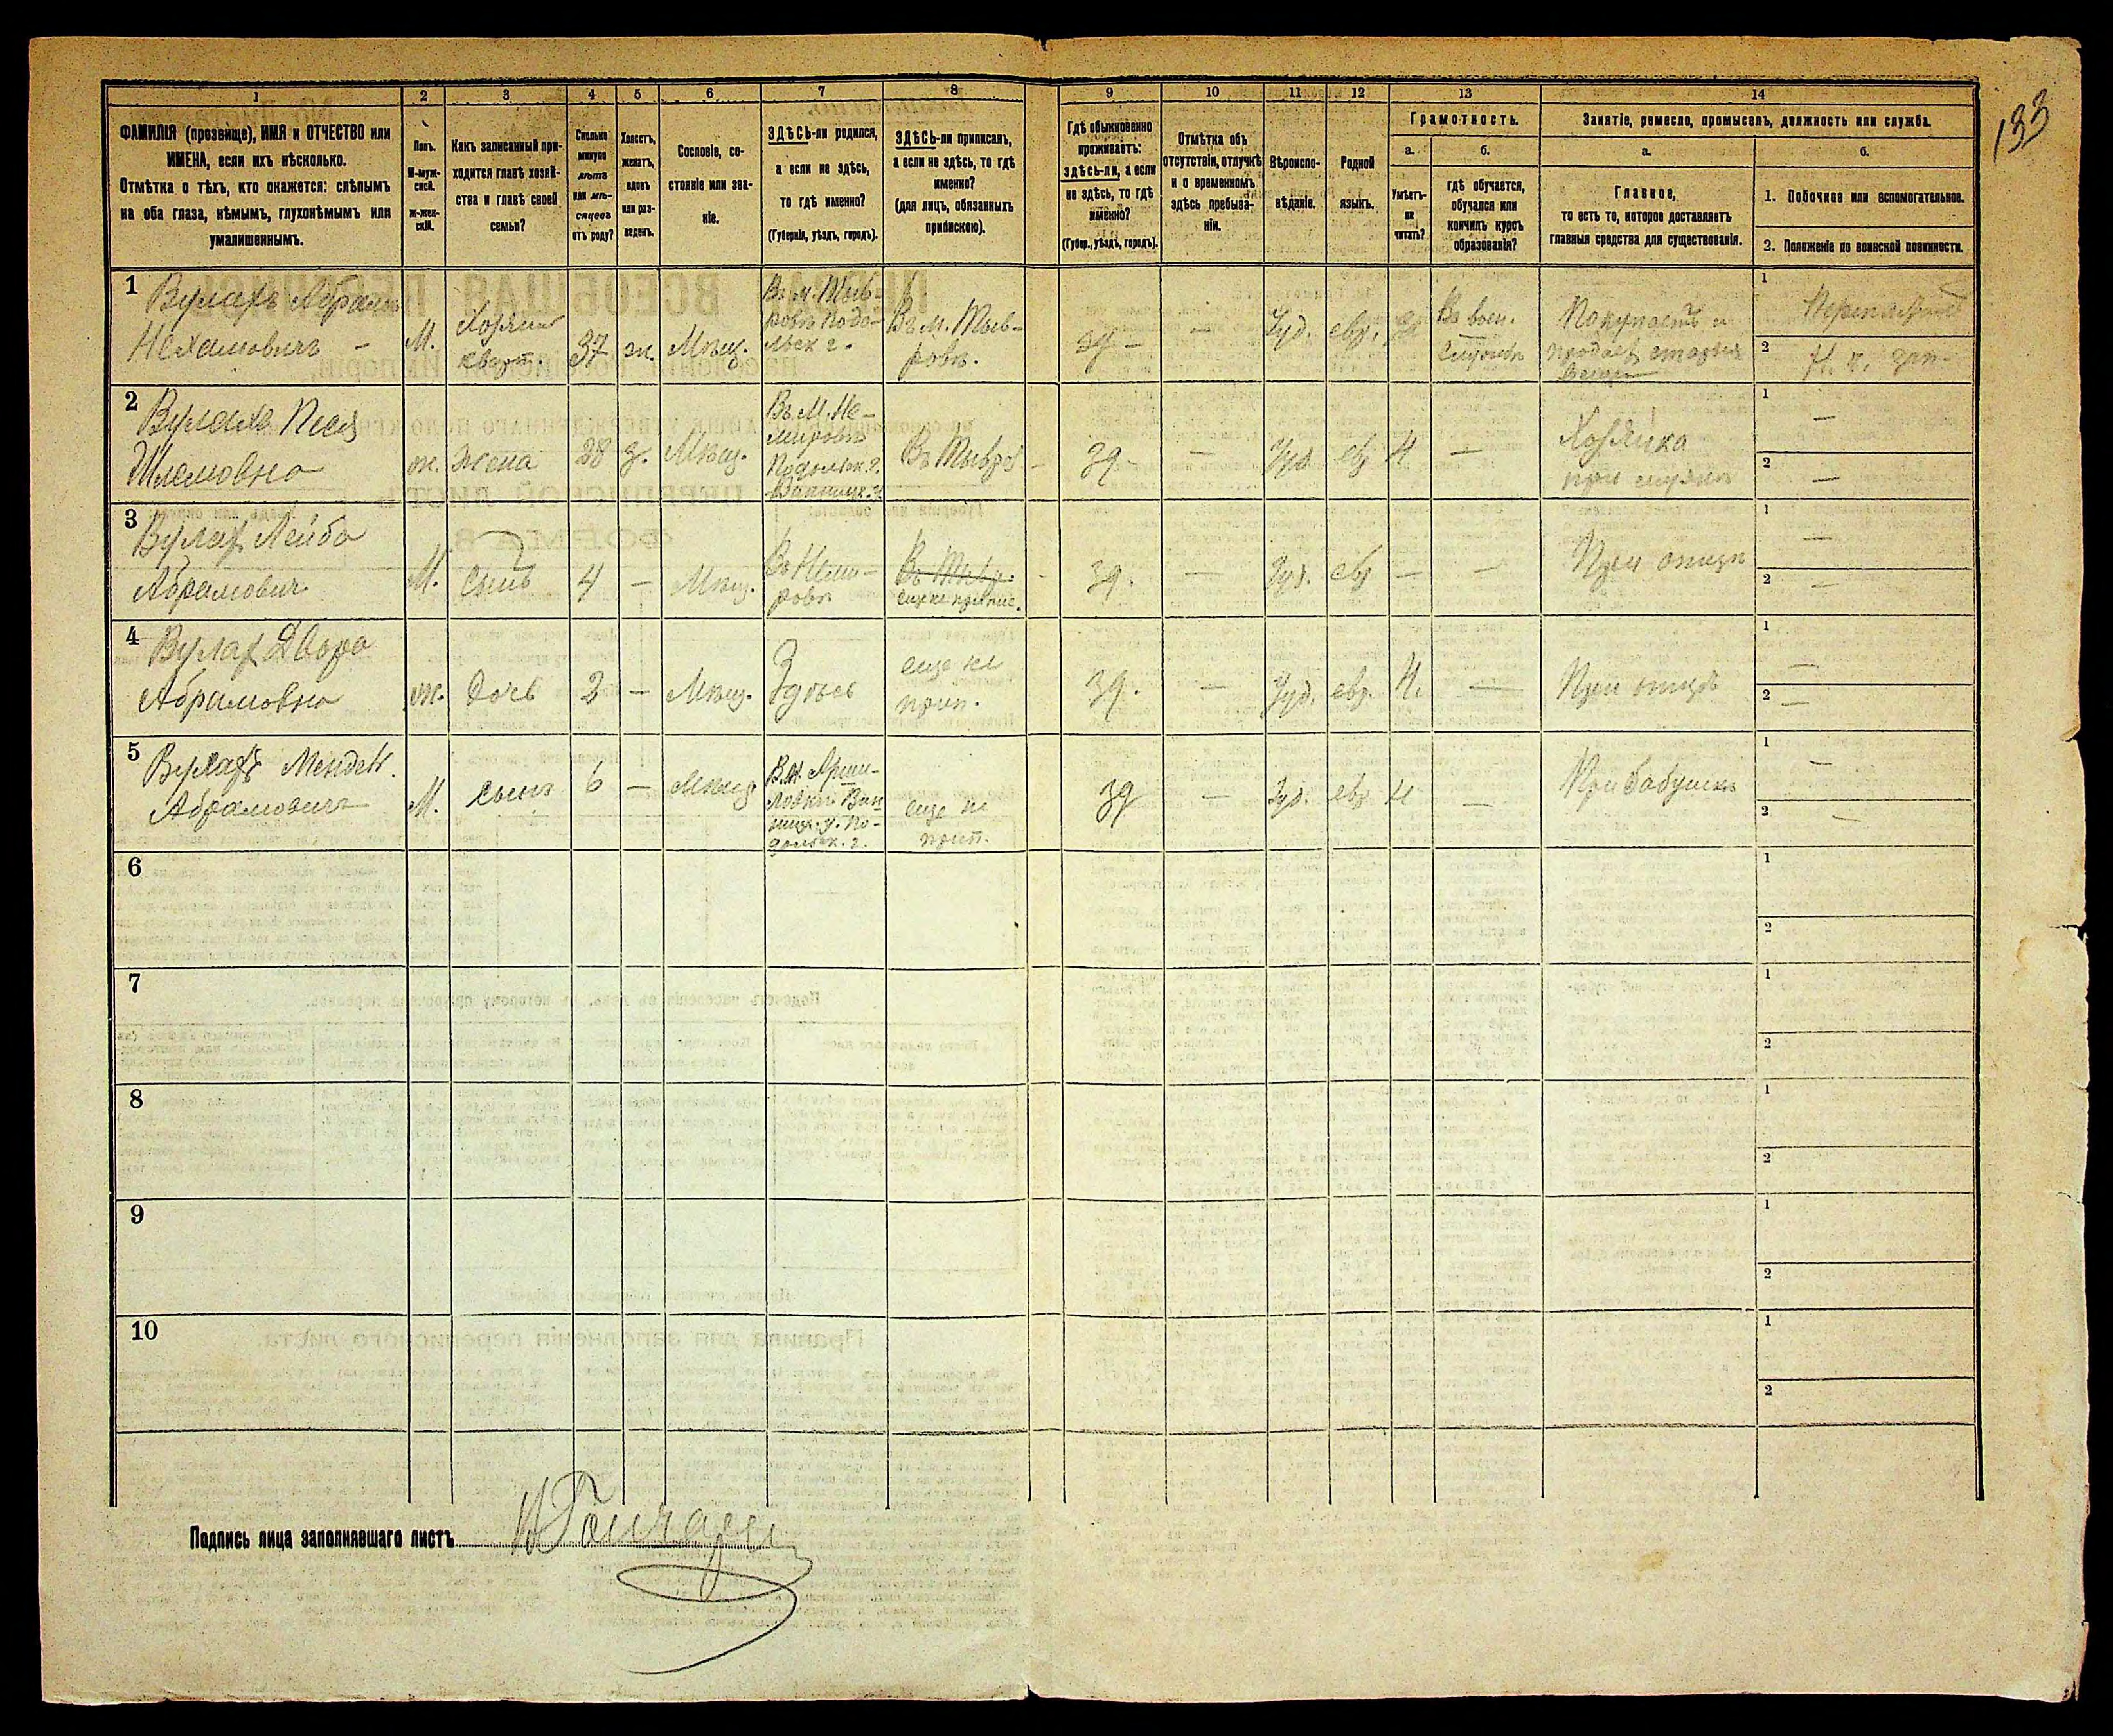 133
1 2 3 4 5 6 7 8 9 10 11 12 13 14
ФАМИЛІЯ (прозвище), ИМЯ и ОТЧЕСТВО или
ИМЕНА, если ихъ нѣсколько.
Отмѣтка о тѣхъ, кто окажется: слѣпымъ
на оба глаза, нѣмымъ, глухонѣмымъ или
умалишеннымъ.
Полъ.
М-муж-
ской.
Ж-жен-
скій.
Какъ записанный при-
ходится главѣ хозяй-
ства и главѣ своей
семьи?
Сколько
минуло
лѣтъ
или мѣ-
сяцевъ
отъ роду?
Холостъ,
женатъ,
вдовъ
или раз-
веденъ.
Сословіе, со-
стояніе или зва-
ніе.
ЗДѢСЬ-ли родился,
а если не здѣсь,
то гдѣ именно?
(Губернія, уѣздъ, городъ).
ЗДѢСЬ-ли приписанъ,
а если не здѣсь, то гдѣ
именно?
(для лицъ, обязанныхъ
припискою).
Гдѣ обыкновенно
проживаетъ:
здѣсь-ли, а если
не здѣсь, то гдѣ
именно?
(Губер., уѣздъ, городъ).
Отмѣтка объ
отсутствіи, отлучкѣ
и о временномъ
здѣсь пребыва-
ніи.
Вѣроиспо-
вѣданіе.
Родной
языкъ.
Грамотность.
а.
Умѣетъ-
ли
читать?
б.
гдѣ обучается,
обучался или
кончилъ курсъ
образованія?
Занятіе, ремесло, промыселъ, должность или служба.
а.
Главное,
то есть то, которое доставляетъ
главныя средства для существованія.
б.
1. Побочное или вспомогательное.
2. Положеніе по воинской повинности.
1
Вулахъ Абрамъ
Нехамовичъ –
М.
Хозяин
кварт.
37
ж.
Мѣщ.
Въ м. Тыв-
ровѣ Подо-
льск г.
Въ м. Тыв-
ровѣ.
зд –
—
Іуд.
евр.
Въ воен.
службѣ
Покупаетъ и
продает старыя
вещи
1
2
2
Вулахъ Песя
Шлемовна
ж.
жена
28
з.
Мѣщ.
Въ М. Не-
мировѣ
Подольск. г.
Винницк. у.
Въ Тывров
зд –
—
Іуд
евр
Н
—
Хозяйка
при мужѣ
1 —
2 —
3
Вулах Лейба
Абрамович
М.
сынъ
4
—
Мѣщ.
Въ Неми-
ровѣ
Въ Тывр.
еще не припис.
зд.
—
Іуд.
евр
—
—
При отцѣ
1 —
2 —
4
Вулах Двора
Абрамовна
ж.
дочь
2
—
Мѣщ.
Здѣсь
еще не
прип.
зд.
—
Іуд.
евр.
Н.
—
При отцѣ
1 —
2 —
5
Вулахъ Мендель
Абрамовичъ
М.
сынъ
6
—
Мѣщ
ницк. у. По-
дольск. г.
еще не
прип.
зд
—
Іуд.
евр
Н
—
При бабушкѣ
1 —
2 —
6
1
2
7
1
2
8
1
2
9
1
2
10
1
2
Подпись лица заполнявшаго листъ